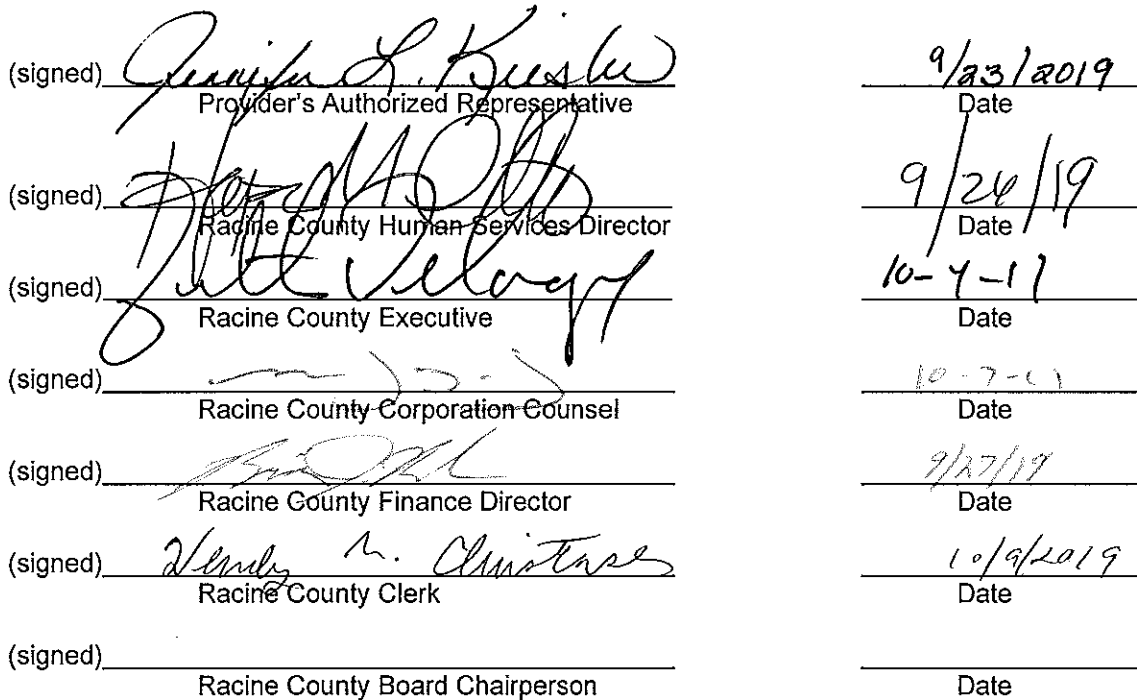 (signed) Jennifer L. 9/23/2019
Provider's Authorized Representative Date
(signed) 9/26/19
Racine County Human Services Director Date
(signed)
Racine County Executive Date
(signed)
Racine County Corporation Counsel Date
(signed) 9/27/19
Racine County Finance Director Date
(signed) Wendy M. Christensen 10/9/2019
Racine County Clerk Date
(signed)
Racine County Board Chairperson Date